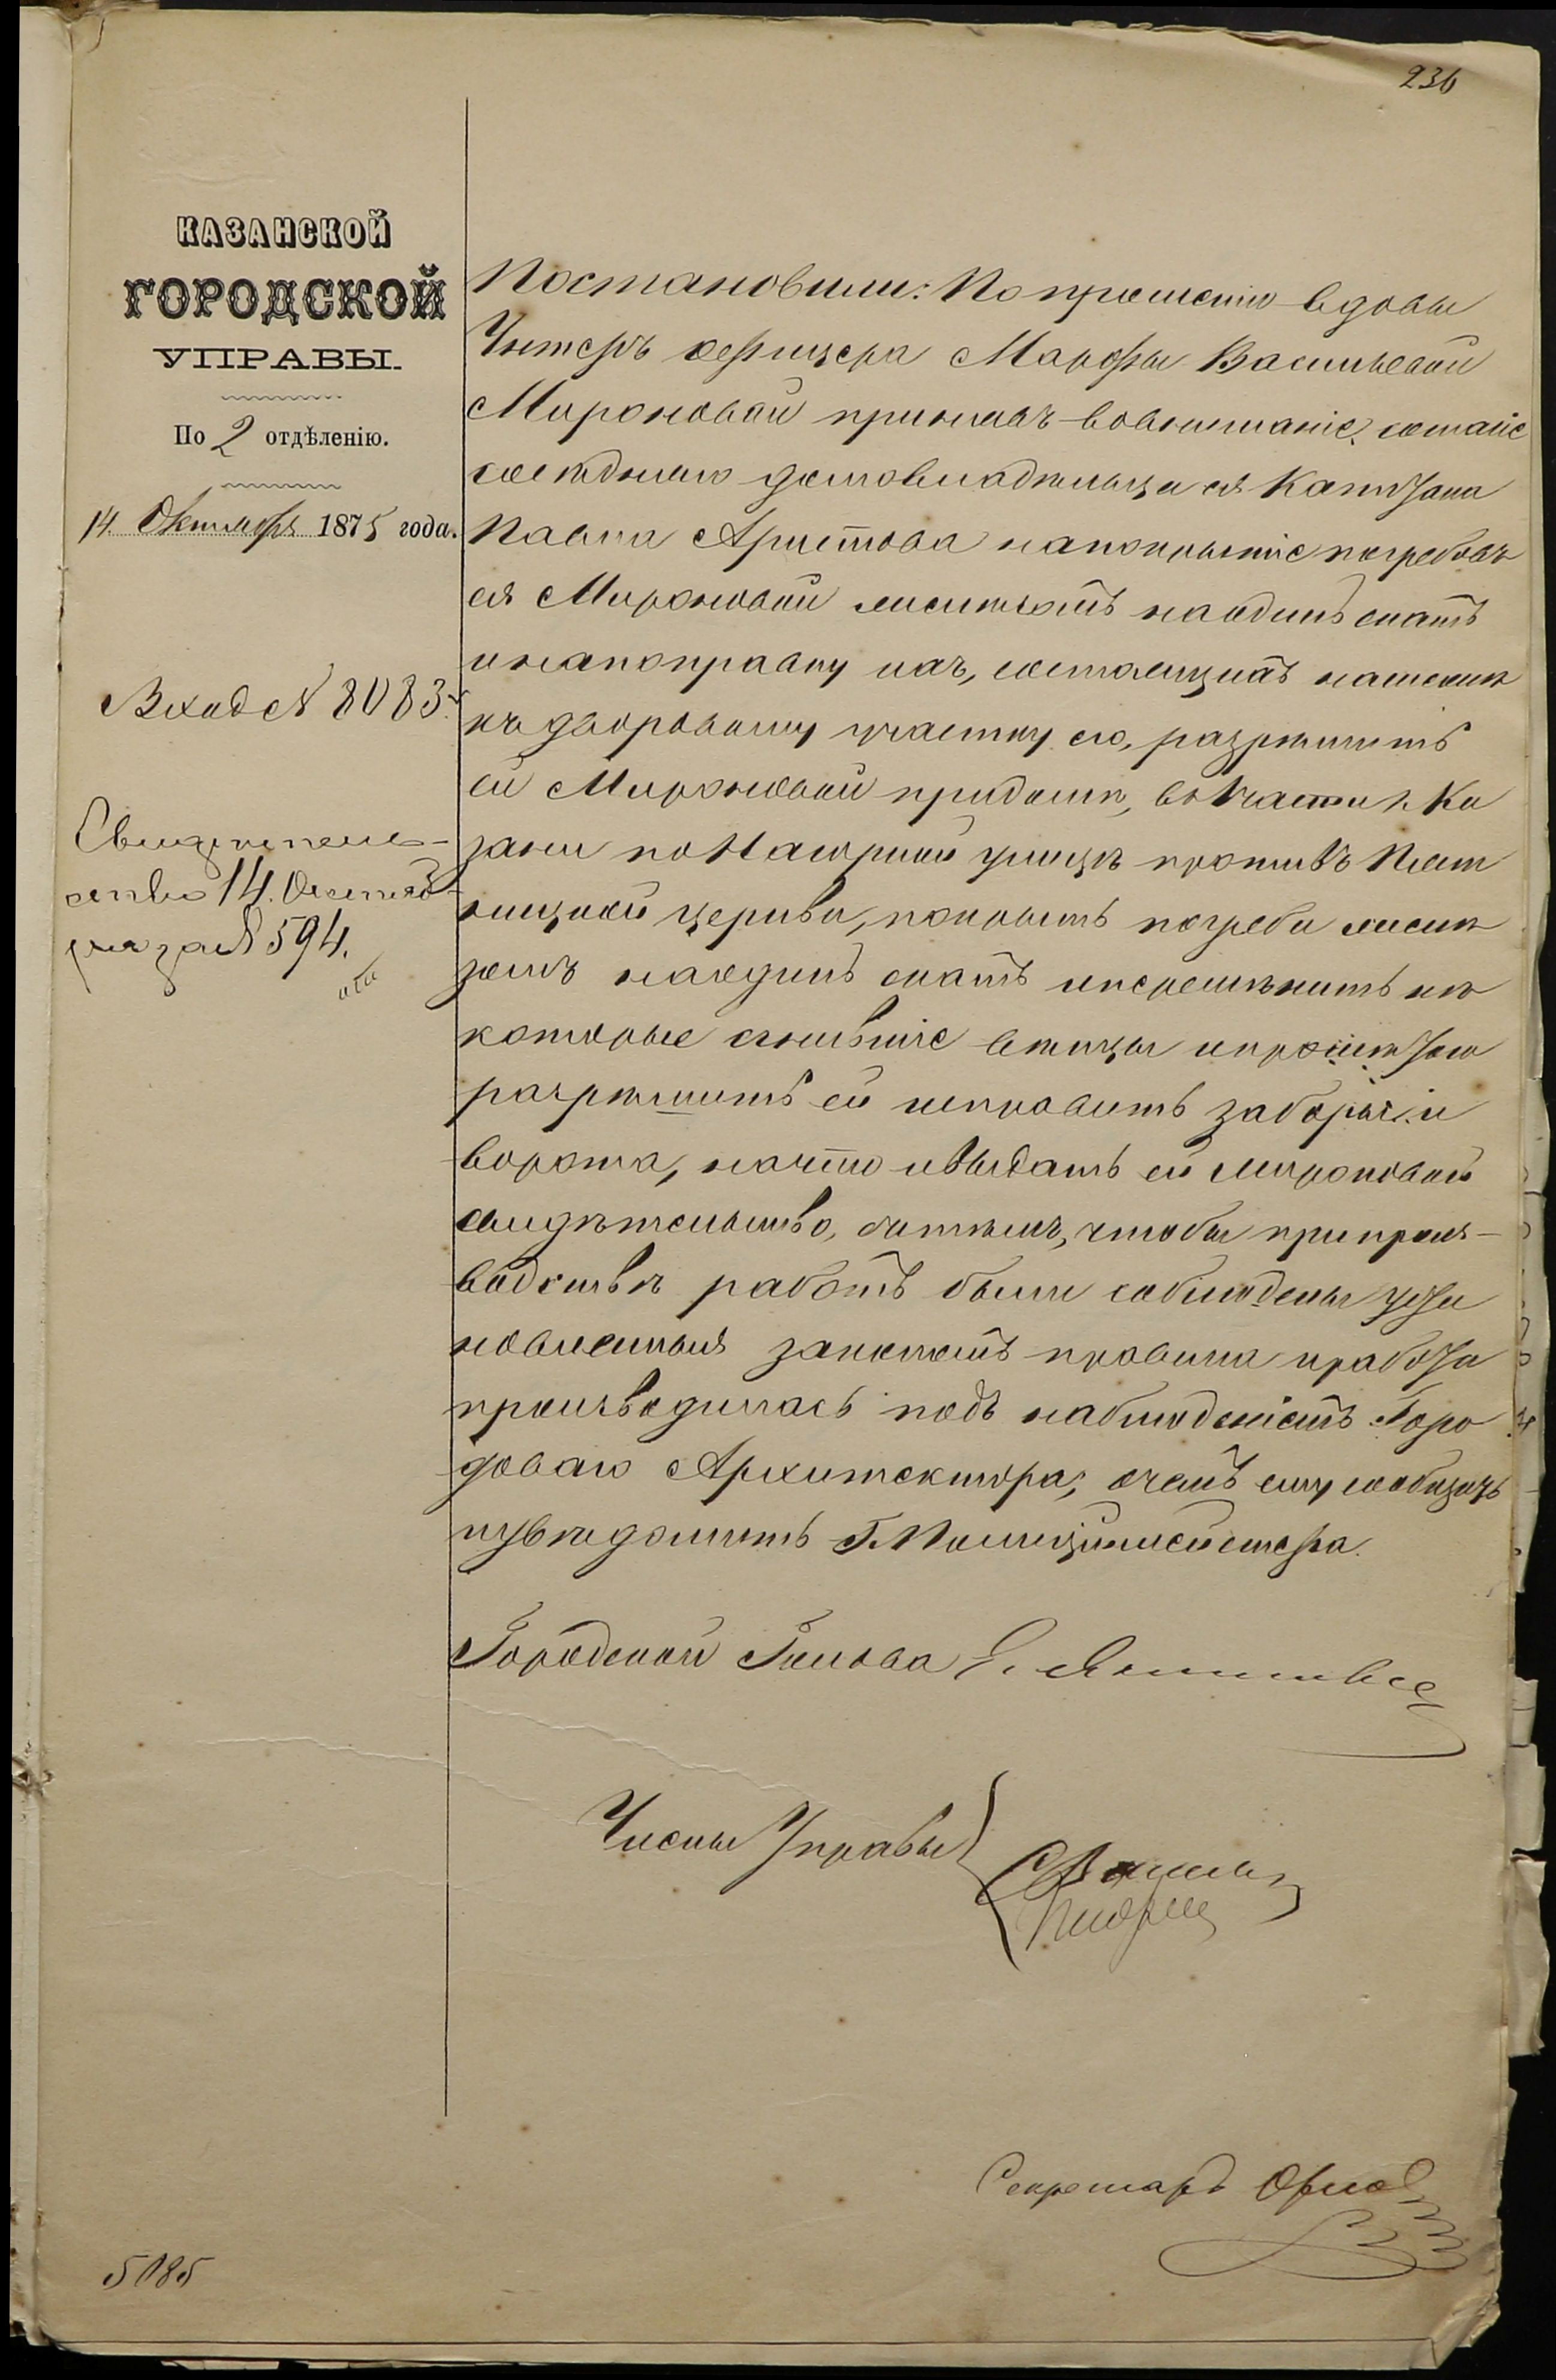 236
КАЗАНСКОЙ
ГОРОДСКОЙ
УПРАВЫ.
По 2 отдѣленію.
14. Октября 1875 года.
Вход № 8083.
Свидѣтель-
ство 14. Октяб-
ря за № 594.
Постановили: По прошенію вдовы
Унтеръ офицера Марфы Васильевой
Мироновой принявъ вовниманіе, согласіе
сосѣдняго домовладѣльца ея Капитана
Павла Аристова напокрытіе погребовъ
ея Мироновой лисьемъ наодинъ скатъ
инапоправку ихъ, состоящихъ
къ дворовому участку его, разрѣшить
ей Мироновой придомѣ, во части г. Ка
зани по Нагорной улицѣ противъ Пят
ницкой церкви, покрыть погреба
наодинъ скатъ иперемѣнить нѣ
которые сгнившіе вѣнцы
разрѣшить ей исправить заборы и
ворота, начто ивыдать ей Мироновой
свидѣтельство, сътѣмъ, чтобы припроиз-
водствѣ работъ были соблюдены уста
новленныя закономъ правила иработа
производилась подъ наблюденіемъ Горо
доваго Архитектора, очемъ ему сообщить
иувѣдомить Г. Полиціймейстера.
Городской Голова Э. Янишевскій
Члены Управы
Секретарь Орлов
5085